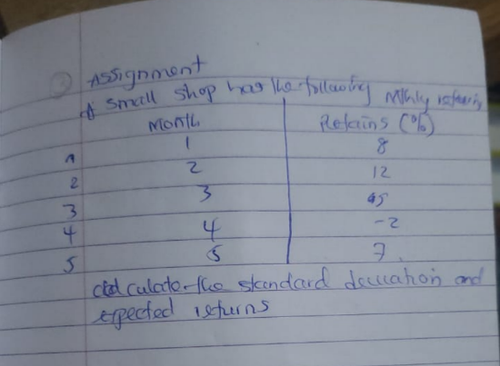 Assignment
A small shop has the following Mthly returns
Month Retains (%)
1 1 8
2 2 12
3 3
4 4 -2
5 5 7
calculate the standard deviation and
expected returns